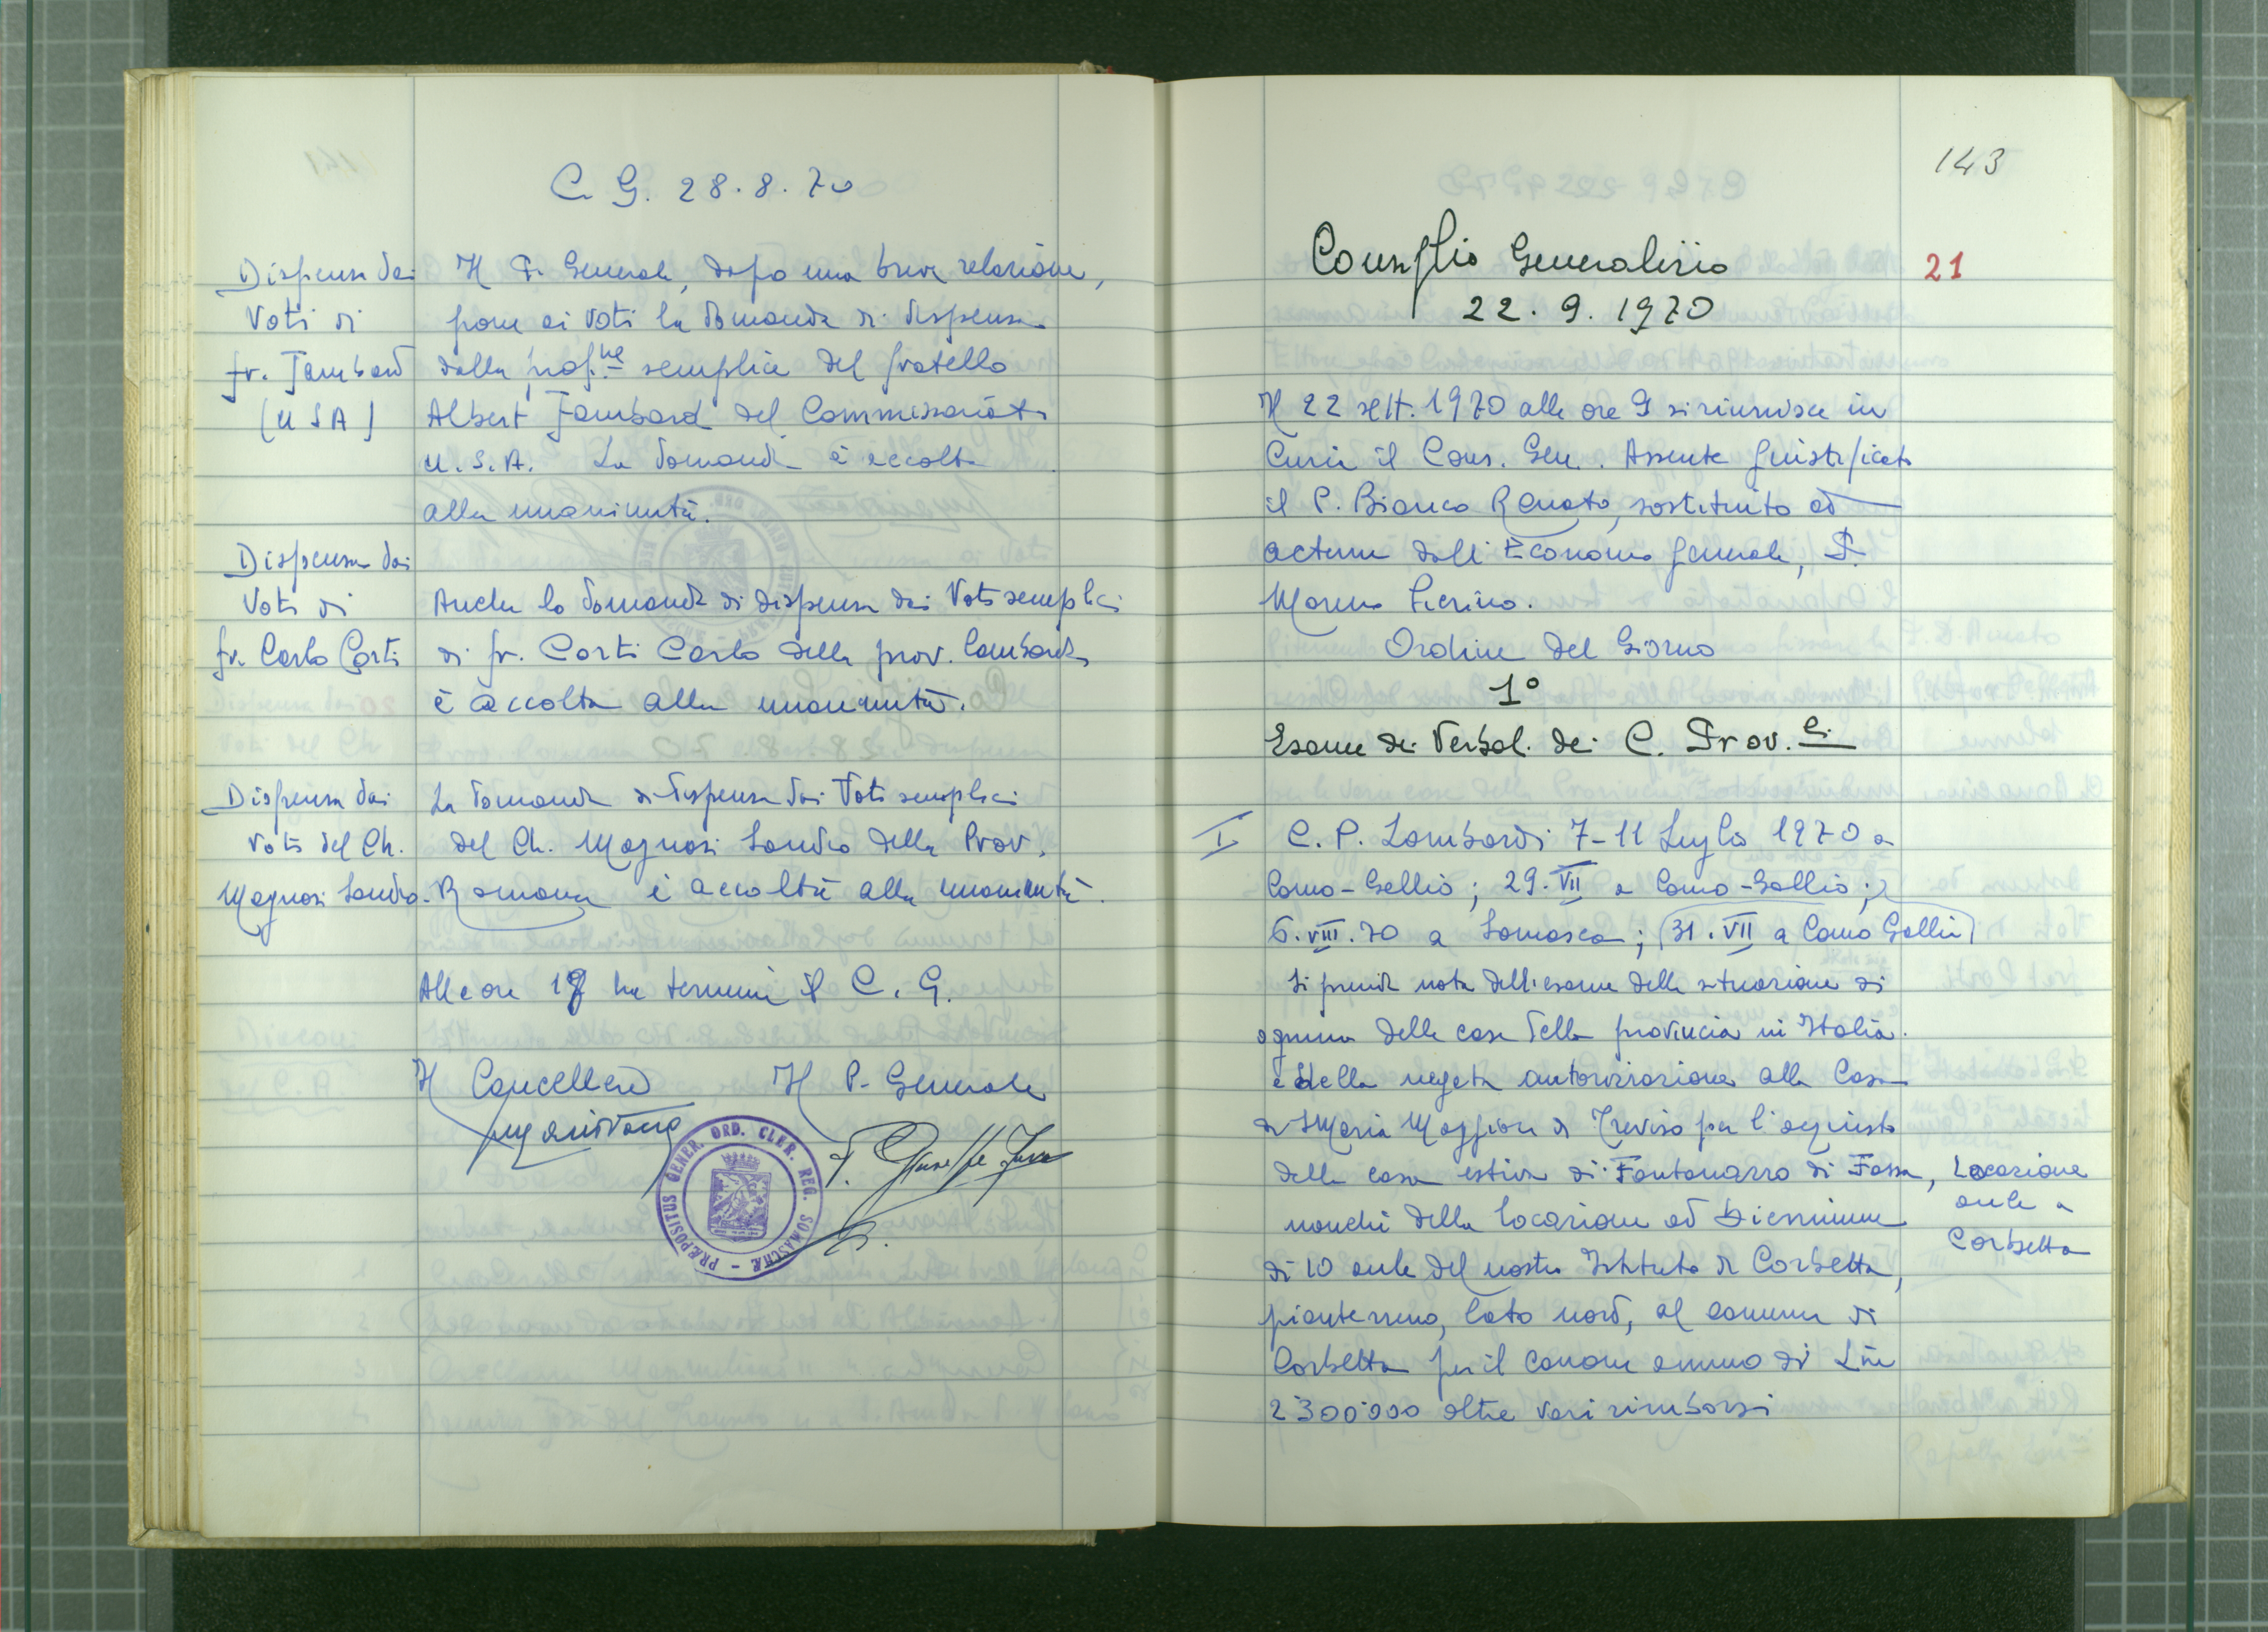 C. G. 28.8.70
Dispensa dai
Voti di
fr. Jambard
(USA)
Il P. Generale, dopo una breve relazione,
pone ai voti la domanda di dispensa
dalla prof.ne semplice del fratello
Albert Jambard del Commissariato
U.S.A. La domanda è accolta
alla unanimità.
Dispensa dai
Voti di
fr. Carlo Corti
Anche la domanda di dispensa dai Voti semplici
di fr. Corti Carlo della prov. Lombarda
è accolta alla unanimità.
Dispensa dai
Voti del Ch.
Magnosi Sandro
La domanda di dispensa dai Voti semplici
del Ch. Magnosi Sandro della Prov.
Romana è accolta alla unanimità.
Alle ore 19 ha termine il C. G.
Il Cancelliere Il P. Generale
P. Giuseppe Fava
PRÆPOSITUS GENER. ORD. CLER. REG. SOMASCHÆ
143
Consiglio Generalizio
21
22.9.1970
Il 22 sett. 1970 alle ore 9 si riunisce in
Curia il Cons. Gen. Assente giustificato
il P. Bianco Renato, sostituito ad
actum dall'Economo generale, P.
Moreno Pierino.
Ordine del Giorno
1°
Esame dei Verbal. dei C. Prov.li
I C. P. Lombardi 7-11 Luglio 1970 a
Como-Gallio; 29.VII a Como-Gallio;
6.VIII.70 a Somasca; (31.VII a Como Gallio)
Si prende nota dell'esame della situazione di
ognuna delle case della provincia in Italia.
e della negata autorizzazione alla Casa
di S Maria Maggiore di Treviso per l'acquisto
della casa estiva di Fontanazzo di Fassa,
nonché della locazione ad biennium
di 10 aule del nostro Istituto di Corbetta,
pianterreno, lato nord, al comune di
Corbetta per il canone annuo di Lire
2300.000 oltre vari rimborsi
Locazione
aule a
Corbetta